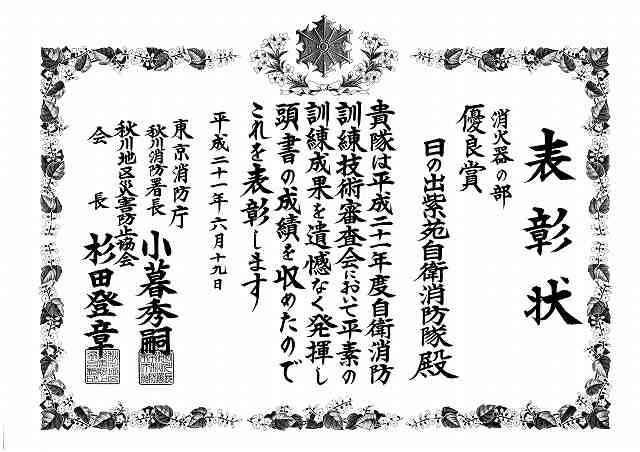 表彰状
消火器の部
優良賞
日の出紫苑自衛消防隊殿
貴隊は平成二十一年度自衛消防
訓練技術審査会において平素の
訓練成果を遺憾なく発揮し
頭書の成績を収めたので
これを表彰します
平成二十一年六月十九日
東京消防庁
秋川消防署長 小暮秀嗣
秋川地区災害防止協会
会長 杉田登章